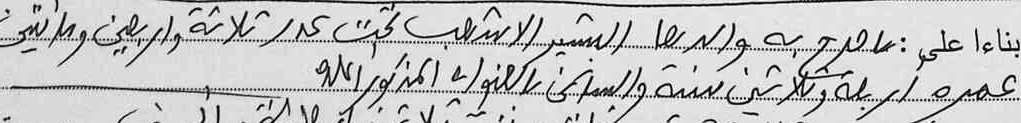 بناءا على : ما صرح به والدها البشير الاشهب تحت عدد ثلاثة واربعين ومائتين
عمره اربعة وثلاثين سنة والساكن بالعنوان المذكور اعلاه